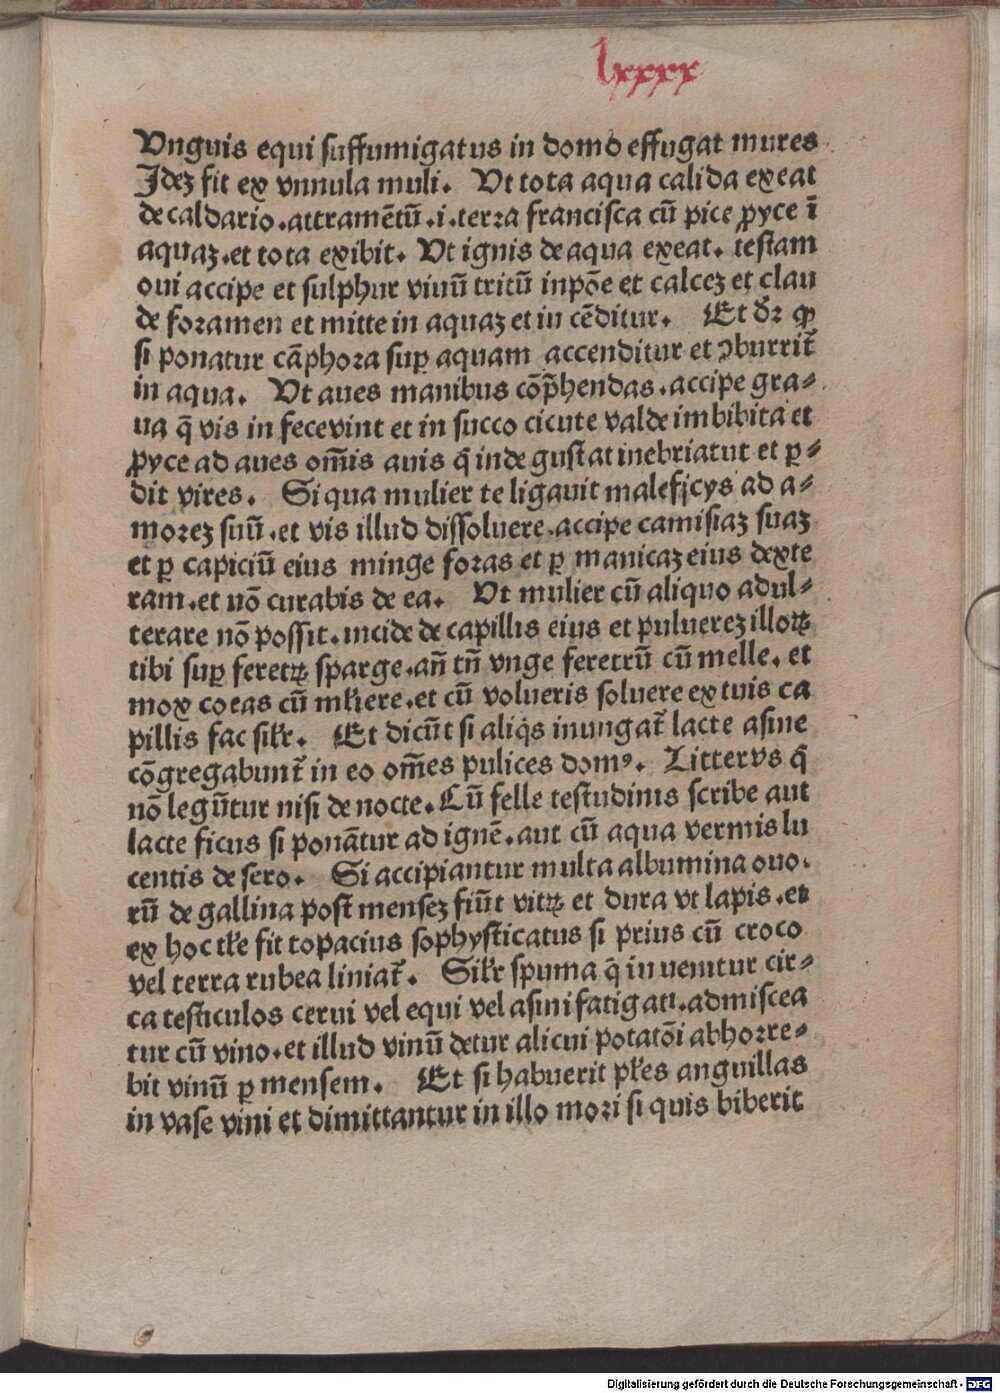 lxxxx
Vnguis equi suffumigatus in domo effugat mures
Idez fit ex vnnula muli. Vt tota aqua calida exeat
de caldario .attramētū .i. terra francisca cū pice ꝓyce ī
aquaz .et tota exibit. Vt ignis de aqua exeat. testam
oui accipe et sulphur viuū tritū inpōe et calcez et clau
de foramen et mitte in aquaz et in cēditur. Et dr̄ ꝙ
si ponatur cāphora suꝑ aquam accenditur et ↄburrit᷑
in aqua. Vt aues manibus cōp̄hendas .accipe gra⸗
ua q̄ vis in fecevint et in succo cicute valde imbibita et
ꝓyce ad aues om̄is auis q̄ inde gustat inebriatut et ꝑ⸗
dit vires. Si qua mulier te ligauit maleficys ad a⸗
morez suū .et vis illud dissoluere .accipe camisiaz suaz
et ꝑ capiciū eius minge foras et ꝑ manicaz eius dexte
ram .et nō curabis de ea. Vt mulier cū aliquo adul⸗
terare nō possit .incide de capillis eius et puluerez illoꝝ
tibi suꝑ feretꝝ sparge .an̄ tn̄ vnge feretrū cū melle. et
mox coeas cū mł̄iere .et cū volueris soluere ex tuis ca
pillis fac silr̄. Et dicūt si aliq̇s inungat᷑ lacte asine
cōgregabunt᷑ in eo om̄es pulices domꝰ. Littervs q̄
nō legūtur nisi de nocte. Cū felle testudinis scribe aut
lacte ficus si ponātur ad ignē .aut cū aqua vermis lu
centis de sero. Si accipiantur multa albumina ouo.
rū de gallina post mensez fiūt vitꝝ et dura vt lapis .et
ex hoc tłe fit topacius sophysticatus si prius cū croco
vel terra rubea liniat᷑. Silr̄ spuma q̄ in uenitur cir⸗
ca testiculos cerui vel equi vel asini fatigati .admiscea
tur cū vino .et illud vinū detur alicui potatōi abhorre⸗
bit vinū ꝑ mensem. Et si habuerit płes anguillas
in vase vini et dimittantur in illo mori si quis biberit
Digitalisierung gefördert durch die Deutsche Forschungsgemeinschaft - DFG